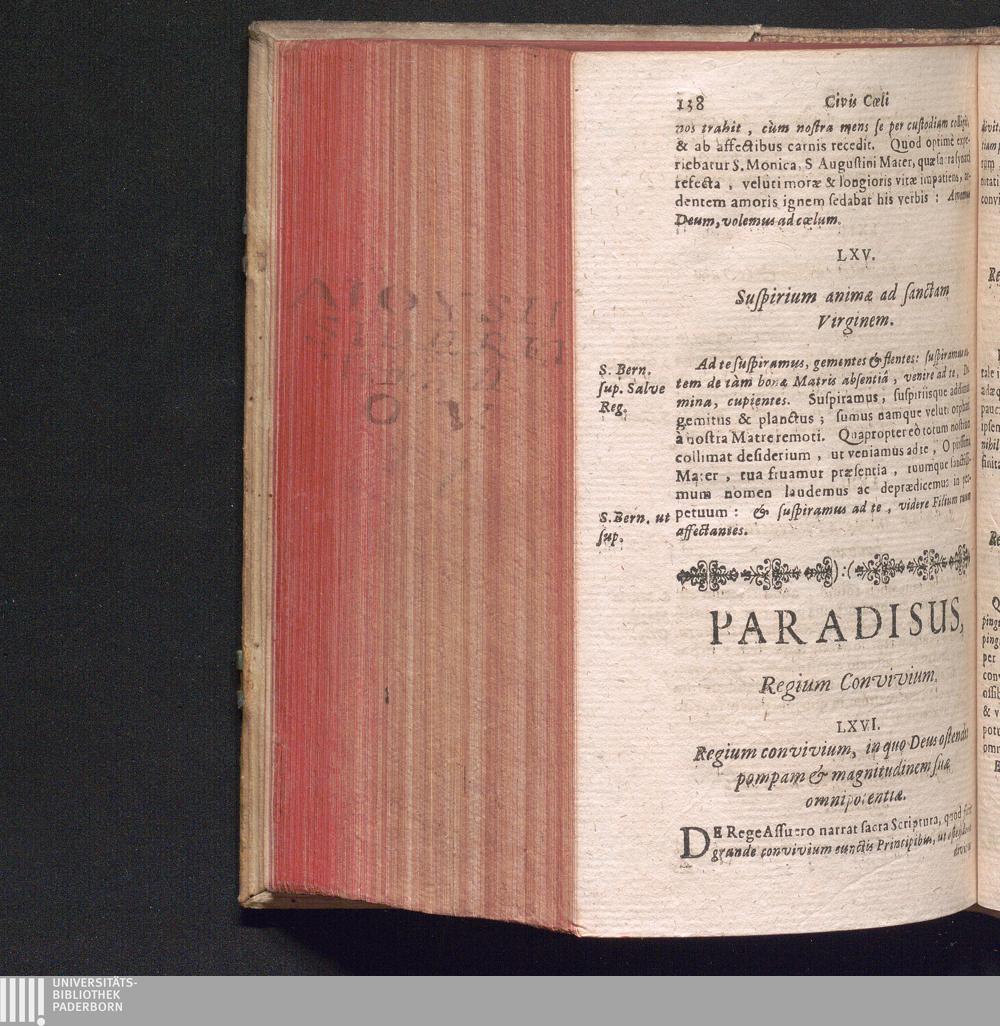 138 Civis Cœli
nos trahit, cùm nostra mens se per custodiam colligit,
& ab affectibus carnis recedit. Quod optimè expe-
riebatur S. Monica, S Augustini Mater, quæ sacra synaxi
refecta, veluti moræ & longioris vitæ impatiens, ar-
dentem amoris ignem sedabat his verbis: Amemus
Deum, volemus ad cœlum.
LXV.
Suspirium animæ ad sanctam
Virginem.
S. Bern.
sup. Salve
Reg.
Ad te suspiramus, gementes & flentes:
tem de tàm bonæ Matris absentiâ, venire ad te, Do-
mina, cupientes. Suspiramus, suspiriisque addimus
gemitus & planctus; sumus namque veluti orphani
à nostra Matre remoti. Quapropter eò totum nostrum
collimat desiderium, ut veniamus ad te, O piissima
Mater, tua fruamur præsentia, tuumque sanctissi-
mum nomen laudemus ac deprædicemus in per-
petuum: & suspiramus ad te, videre Filium tuum
affectantes.
S. Bern. ut
sup.
):(
PARADISUS,
Regium Convivium.
LXVI.
Regium convivium, in quo Deus ostendit
pompam & magnitudinem suæ
omnipotentiæ.
DE Rege Assuero narrat sacra Scriptura, quod fecit
grande convivium cunctis Principibus, ut ostenderet
UNIVERSITÄTS-
BIBLIOTHEK
PADERBORN